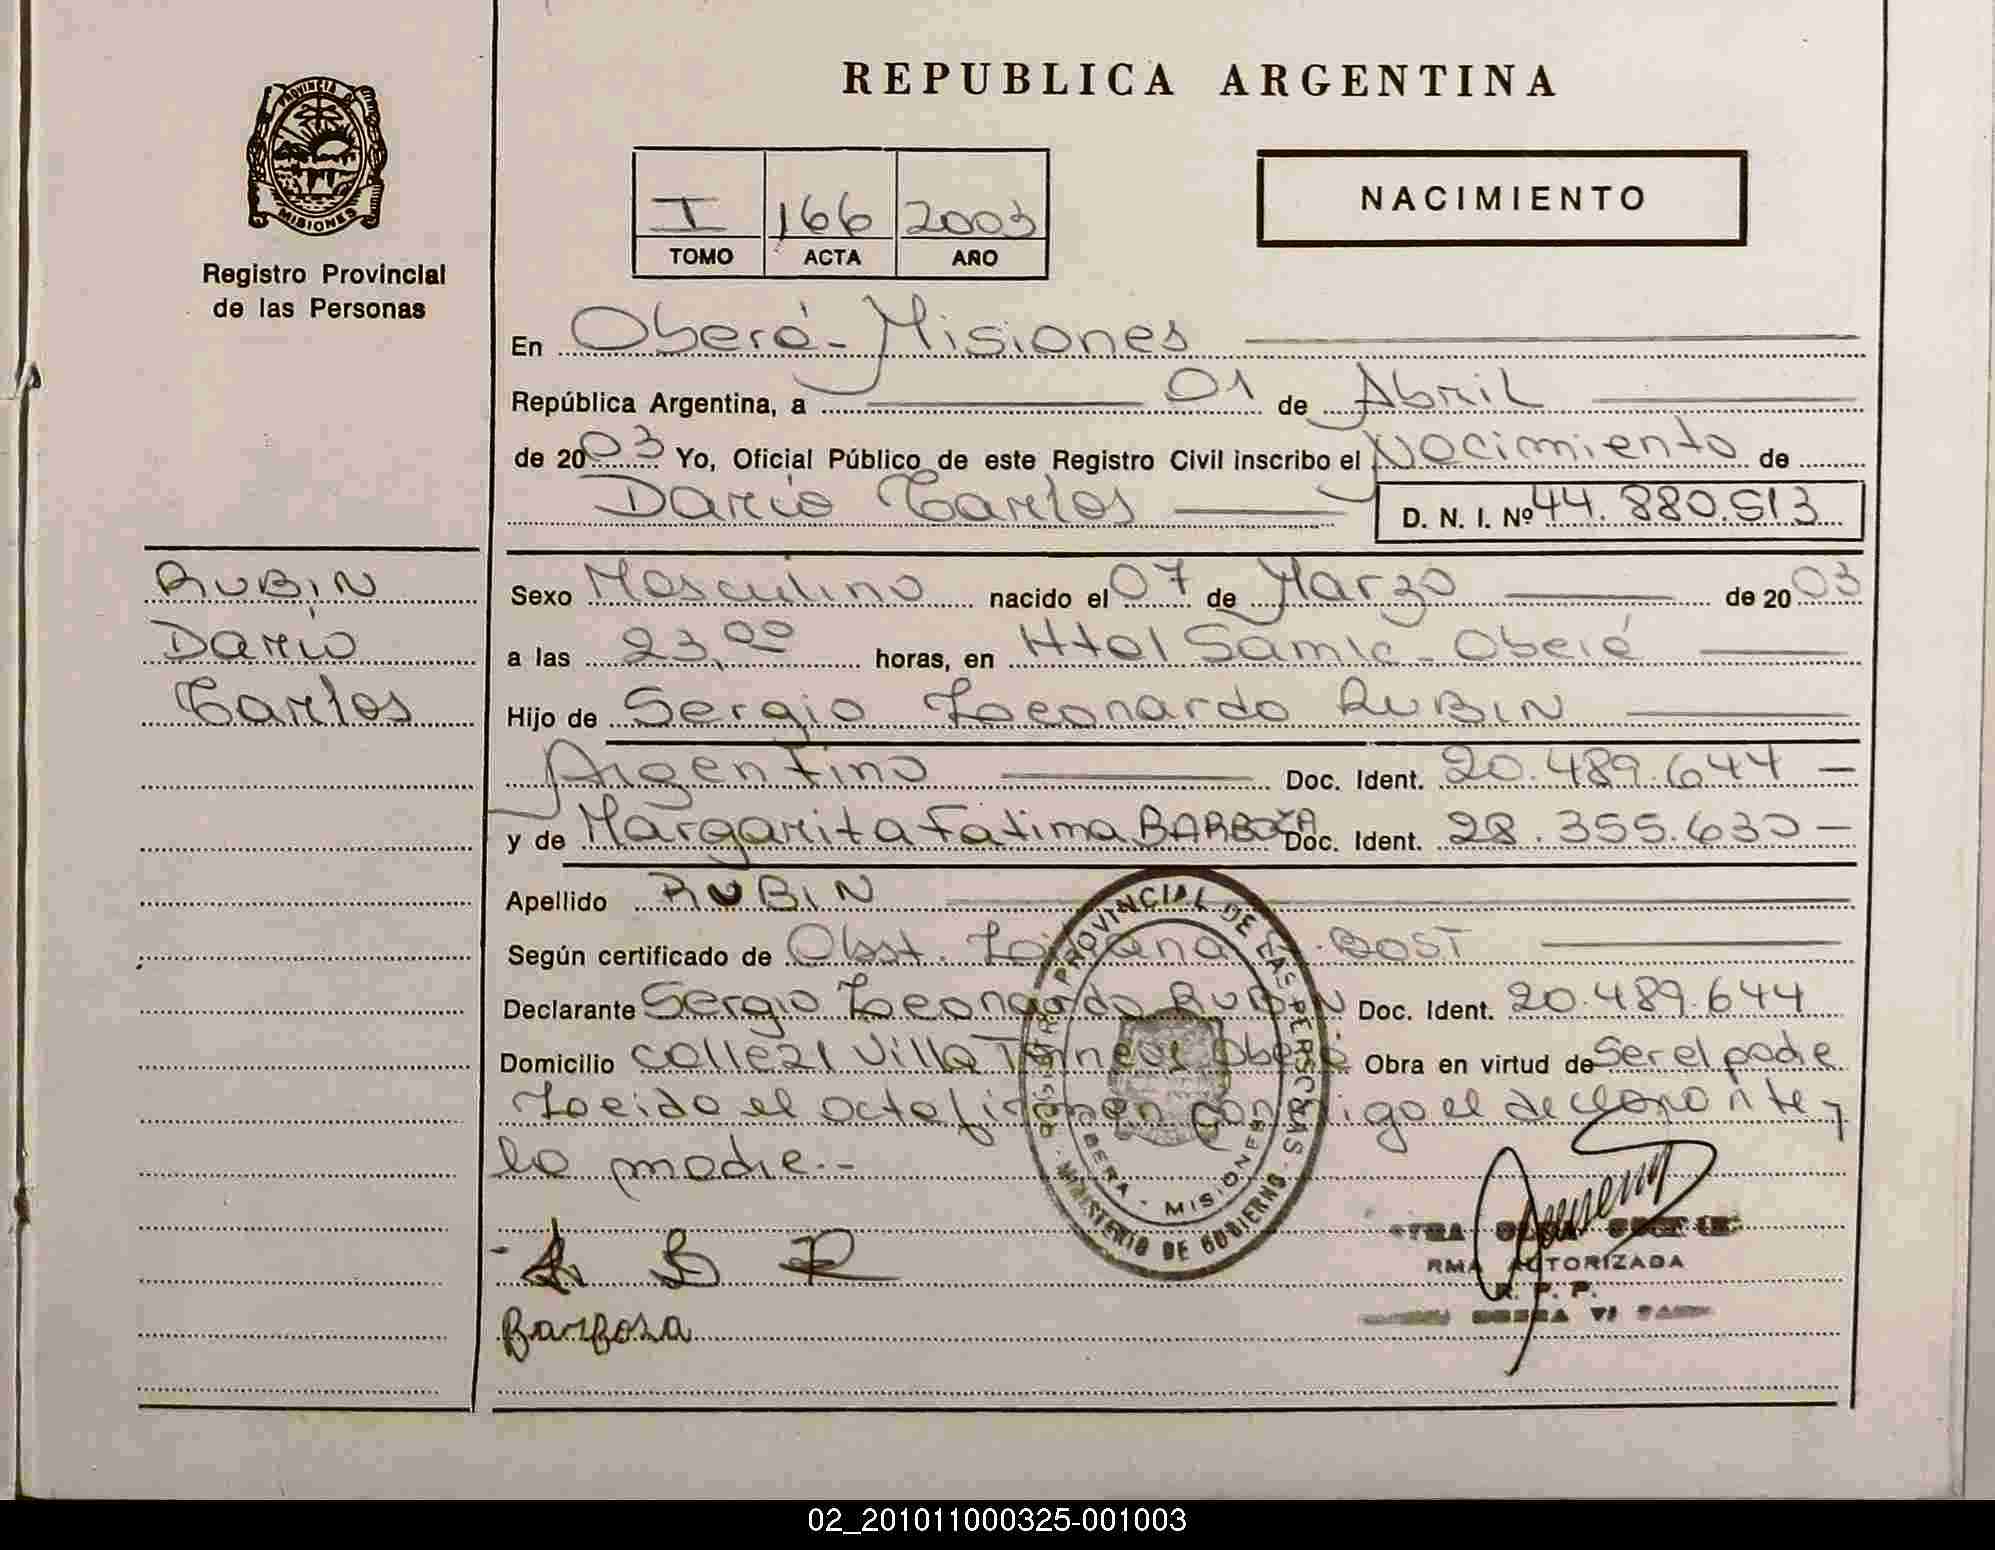 PROVINCIA DE
MISIONES
Registro Provincial
de las Personas
REPUBLICA ARGENTINA
I 166 2003
TOMO ACTA AÑO
NACIMIENTO
En Oberá - Misiones
República Argentina, a 01 de Abril
de 2003 Yo, Oficial Público de este Registro Civil inscribo el Nacimiento de
Darío Carlos D. N. I. Nº 44.880.513
RUBIN
Darío
Carlos
Sexo Masculino nacido el 07 de Marzo de 2003
a las 23,00 horas, en Htal Samic - Oberá
Hijo de Sergio Leonardo RUBIN
Argentino Doc. Ident. 20.489.644 -
y de Margarita Fatima BARBOZA Doc. Ident. 28.355.630 -
Apellido RUBIN
Según certificado de Obst. BOST
Declarante Sergio Leonardo RUBIN Doc. Ident. 20.489.644
Domicilio calle 21 Villa Oberá Obra en virtud de Ser el padre
Leida el acta firman conmigo el declarante y
la madre.-
REGISTRO PROVINCIAL DE LAS PERSONAS
OBERA - MISIONES
MINISTERIO DE GOBIERNO
Barboza
AUTORIZADA
R. P. P.
02_201011000325-001003